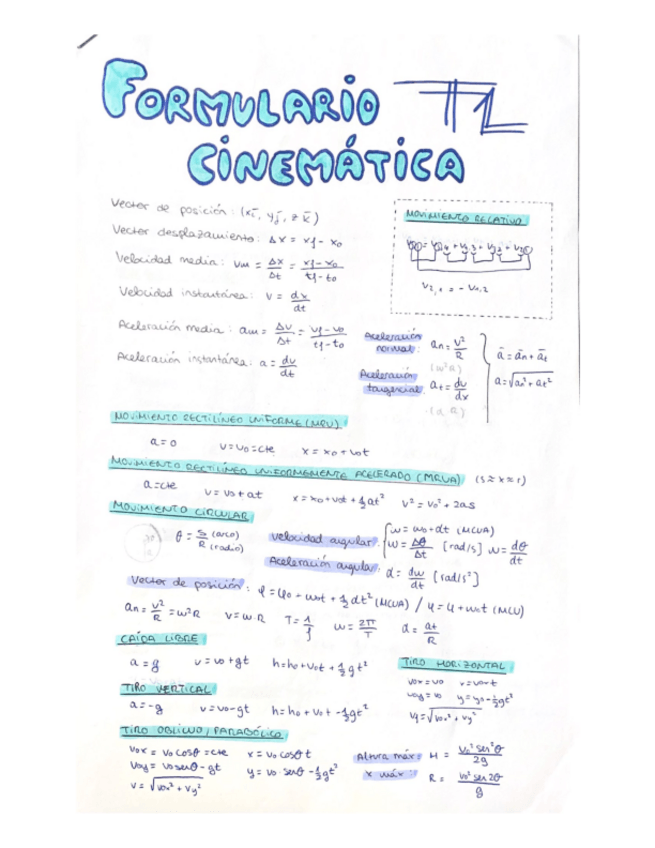 FORMULARIO T1
CINEMÁTICA
Vector de posición: (xī, yj̄, z k̄)
Vector desplazamiento: Δx = xf - x0
Velocidad media: vm = Δx/Δt = (xf - x0)/(tf - t0)
Velocidad instantánea: v = dx/dt
Aceleración media: am = Δv/Δt = (vf - v0)/(tf - t0)
Aceleración instantánea: a = dv/dt
MOVIMIENTO RELATIVO
v2,1 = - v1,2
Aceleración normal: an = v²/R
(w²R)
Aceleración tangencial: at = dv/dx
(α·R)
ā = ān + āt
a = √an² + at²
MOVIMIENTO RECTILÍNEO UNIFORME (MRU)
a = 0 v = v0 = cte x = x0 + v0t
MOVIMIENTO RECTILÍNEO UNIFORMEMENTE ACELERADO (MRUA) (s ≈ x ≈ r)
a = cte v = v0 + at x = x0 + v0t + ½at² v² = v0² + 2as
MOVIMIENTO CIRCULAR
θ = S (arco)/R (radio)
Velocidad angular: w = w0 + αt (MCUA)
w = Δθ/Δt [rad/s] w = dθ/dt
Aceleración angular: α = dw/dt [rad/s²]
Vector de posición: φ = φ0 + w0t + ½αt² (MCUA) / φ = φ + w0t (MCU)
an = v²/R = w²R v = w·R T = 1/f w = 2π/T α = at/R
CAÍDA LIBRE
a = g v = v0 + gt h = h0 + v0t + ½gt²
TIRO VERTICAL
a = -g v = v0 - gt h = h0 + v0t - ½gt²
TIRO HORIZONTAL
v0x = v0 x = v0·t
v0y = y = y0 - ½gt²
vf = √v0x² + vy²
TIRO OBLICUO/PARABÓLICO
v0x = v0 cosθ = cte x = v0 cosθ t
v0y = v0 senθ - gt y = v0 · senθ - ½gt²
v = √v0x² + vy²
Altura máx: H = v0² sen²θ/2g
x máx: R = v0² sen 2θ/g